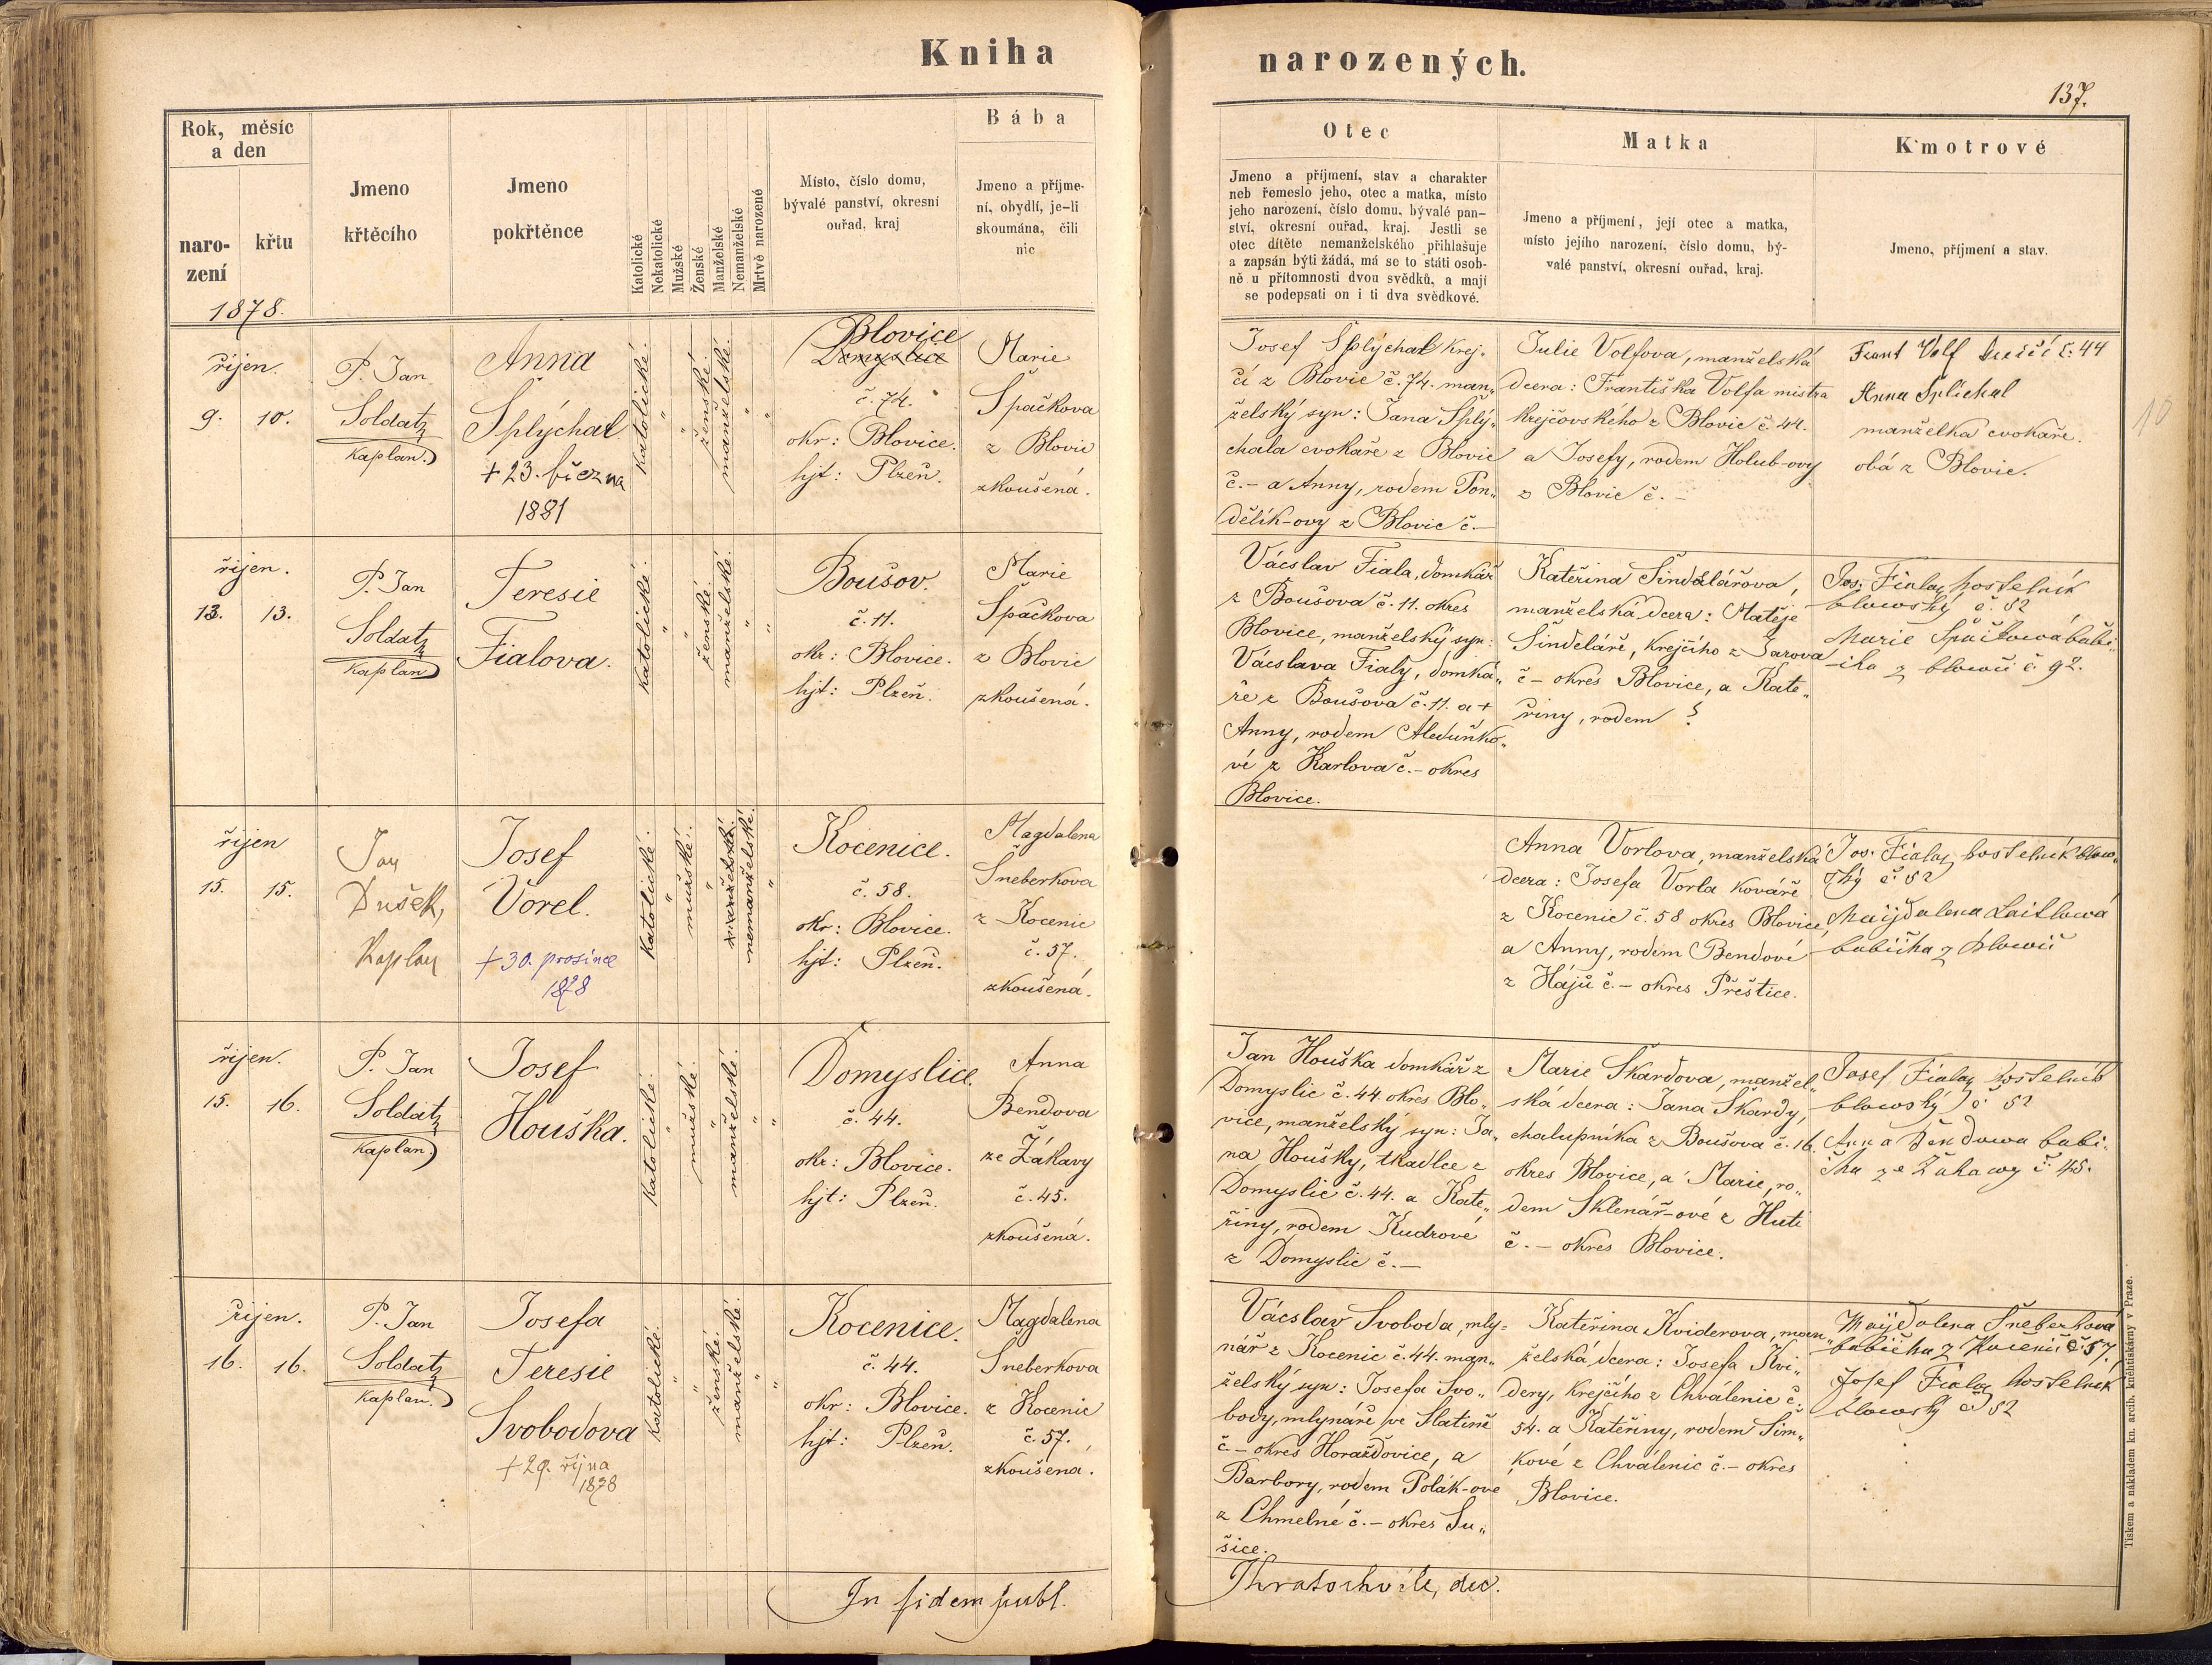 Kniha
narozených.
137.
Rok, měsíc
a den
naro-
zení
křtu
1878.
Jmeno
křtěcího
Jmeno
pokřtěnce
Katolické
Nekatolické
Mužské
Ženské
Manželské
Nemanželské
Mrtvě narozené
Místo, číslo domu,
bývalé panství, okresní
ouřad, kraj
Bába
Jmeno a příjme-
ní, obydlí, je-li
skoumána, čili
nic
Otec
Jmeno a příjmení, stav a charakter
neb řemeslo jeho, otec a matka, místo
jeho narození, číslo domu, bývalé pan-
ství, okresní ouřad, kraj. Jestli se
otec dítěte nemanželského přihlašuje
a zapsán býti žádá, má se to státi osob-
ně u přítomnosti dvou svědků, a mají
se podepsati on i ti dva svědkové.
Matka
Jmeno a příjmení, její otec a matka,
místo jejího narození, číslo domu, bý-
valé panství, okresní ouřad, kraj.
Kmotrové
Jmeno, příjmení a stav.
říjen.
9. 10.
P. Jan
Soldatz
Kaplan.
Anna
Šplýchal.
+ 23. března
1881
Katolické.
"
"
ženské.
manželské.
"
"
Blovice
Domyslice
č. 74.
okr: Blovice.
hjt: Plzeň.
Marie
Špačkova
z Blovic
zkoušená.
Josef Šplýchal krej-
čí z Blovic č. 74. man„
želský syn: Jana Šplý„
chala cvokaře z Blovic
č. – a Anny, rodem Pon„
dělík-ovy z Blovic č. –
Julie Volfova, manželská
dcera: Františka Volfa mistra
krejčovského z Blovic č. 44.
a Josefy, rodem Holub-ovy
z Blovic č. –
Frant Volf krejčí č. 44
Anna Šplíchal
manželka cvokaře.
obá z Blovic.
10
říjen.
13. 13.
P. Jan
Soldatz
Kaplan
Teresie
Fialova.
Katolické.
"
"
ženské.
manželské.
"
"
Boušov.
č. 11.
okr: Blovice.
hjt: Plzeň.
Marie
Špačkova
z Blovic
zkoušená.
Vácslav Fiala, domkář
z Boušova č. 11. okres
Blovice, manželský syn:
Vácslava Fialy, domká„
ře z Boušova č. 11. a +
Anny, rodem Aleduňko„
vé z Karlova č. – okres
Blovice.
Kateřina Šindelářova,
manželská dcera: Matěje
Šindeláře, krejčího z Žarova
č – okres Blovice, a Kate„
řiny, rodem ?
Jos. Fiala, kostelník
blowský č. 52
Marie Špačkowá babi-
čka z blowic č 92.
říjen
15. 15.
Jan
Dušek,
Kaplan
Josef
Vorel.
+ 30. prosince
1878
Katolické.
"
mužské.
"
manželské.
nemanželské.
"
Kocenice.
č. 58.
okr: Blovice.
hjt: Plzeň.
Magdalena
Šneberkova
z Kocenic
č. 57.
zkoušená.
Anna Vorlova, manželská
dcera: Josefa Vorla kováře
z Kocenic č. 58 okres Blovice,
a Anny, rodem Bendové
z Hájů č. – okres Přeštice.
Jos. Fiala, kostelník blow-
ský č. 52
Majdalena Laitlowá
babička z blowic
říjen.
15. 16.
P. Jan
Soldatz
Kaplan.
Josef
Houška.
Katolické.
"
mužské.
"
manželské.
"
"
Domyslice.
č. 44.
okr: Blovice.
hjt: Plzeň.
Anna
Bendova
ze Žákavy
č. 45.
zkoušená.
Jan Houška domkář z
Domyslic č. 44. okres Blo„
vice, manželský syn: Ja„
na Houšky, tkadlce z
Domyslic č. 44. a Kate„
řiny, rodem Kudrové
z Domyslic č. –
Marie Škardova, manžel„
ská dcera: Jana Škardy,
chalupníka z Boušova č. 16.
okres Blovice, a Marie, ro„
dem Sklenář-ové z Hutí
č. – okres Blovice.
Josef Fiala, kostelník
blowský č 52
Anna Bendowa babi-
čka ze Žákawy č. 45.
říjen.
16. 16.
P. Jan
Soldatz
Kaplan.
Josefa
Teresie
Svobodova
+ 29. října
1878
Katolické.
"
"
ženské.
manželské.
"
"
Kocenice.
č. 44.
okr: Blovice.
hjt: Plzeň.
Magdalena
Šneberkova
z Kocenic
č. 57.
zkoušená.
Vácslav Svoboda, mly-
nář z Kocenic č. 44. man„
želský syn: Josefa Svo„
body, mlynáře ve Slatině
č – okres Horažďovice, a
Barbory, rodem Polák-ové
z Chmelné č. – okres Su„
šice.
Kateřina Kviderova, man„
želská dcera: Josefa Kvi„
dery, krejčího z Chválenic č.
54. a Kateřiny, rodem Šim„
kové z Chválenic č. – okres
Blovice.
Majdalena Šneberkova
babička z Kocenic č. 57.
Josef Fiala, kostelník
blowský č 52
In fidem publ.
Thratochvíle, dec.
Tiskem a nákladem kn. arcib. knihtiskárny v Praze.